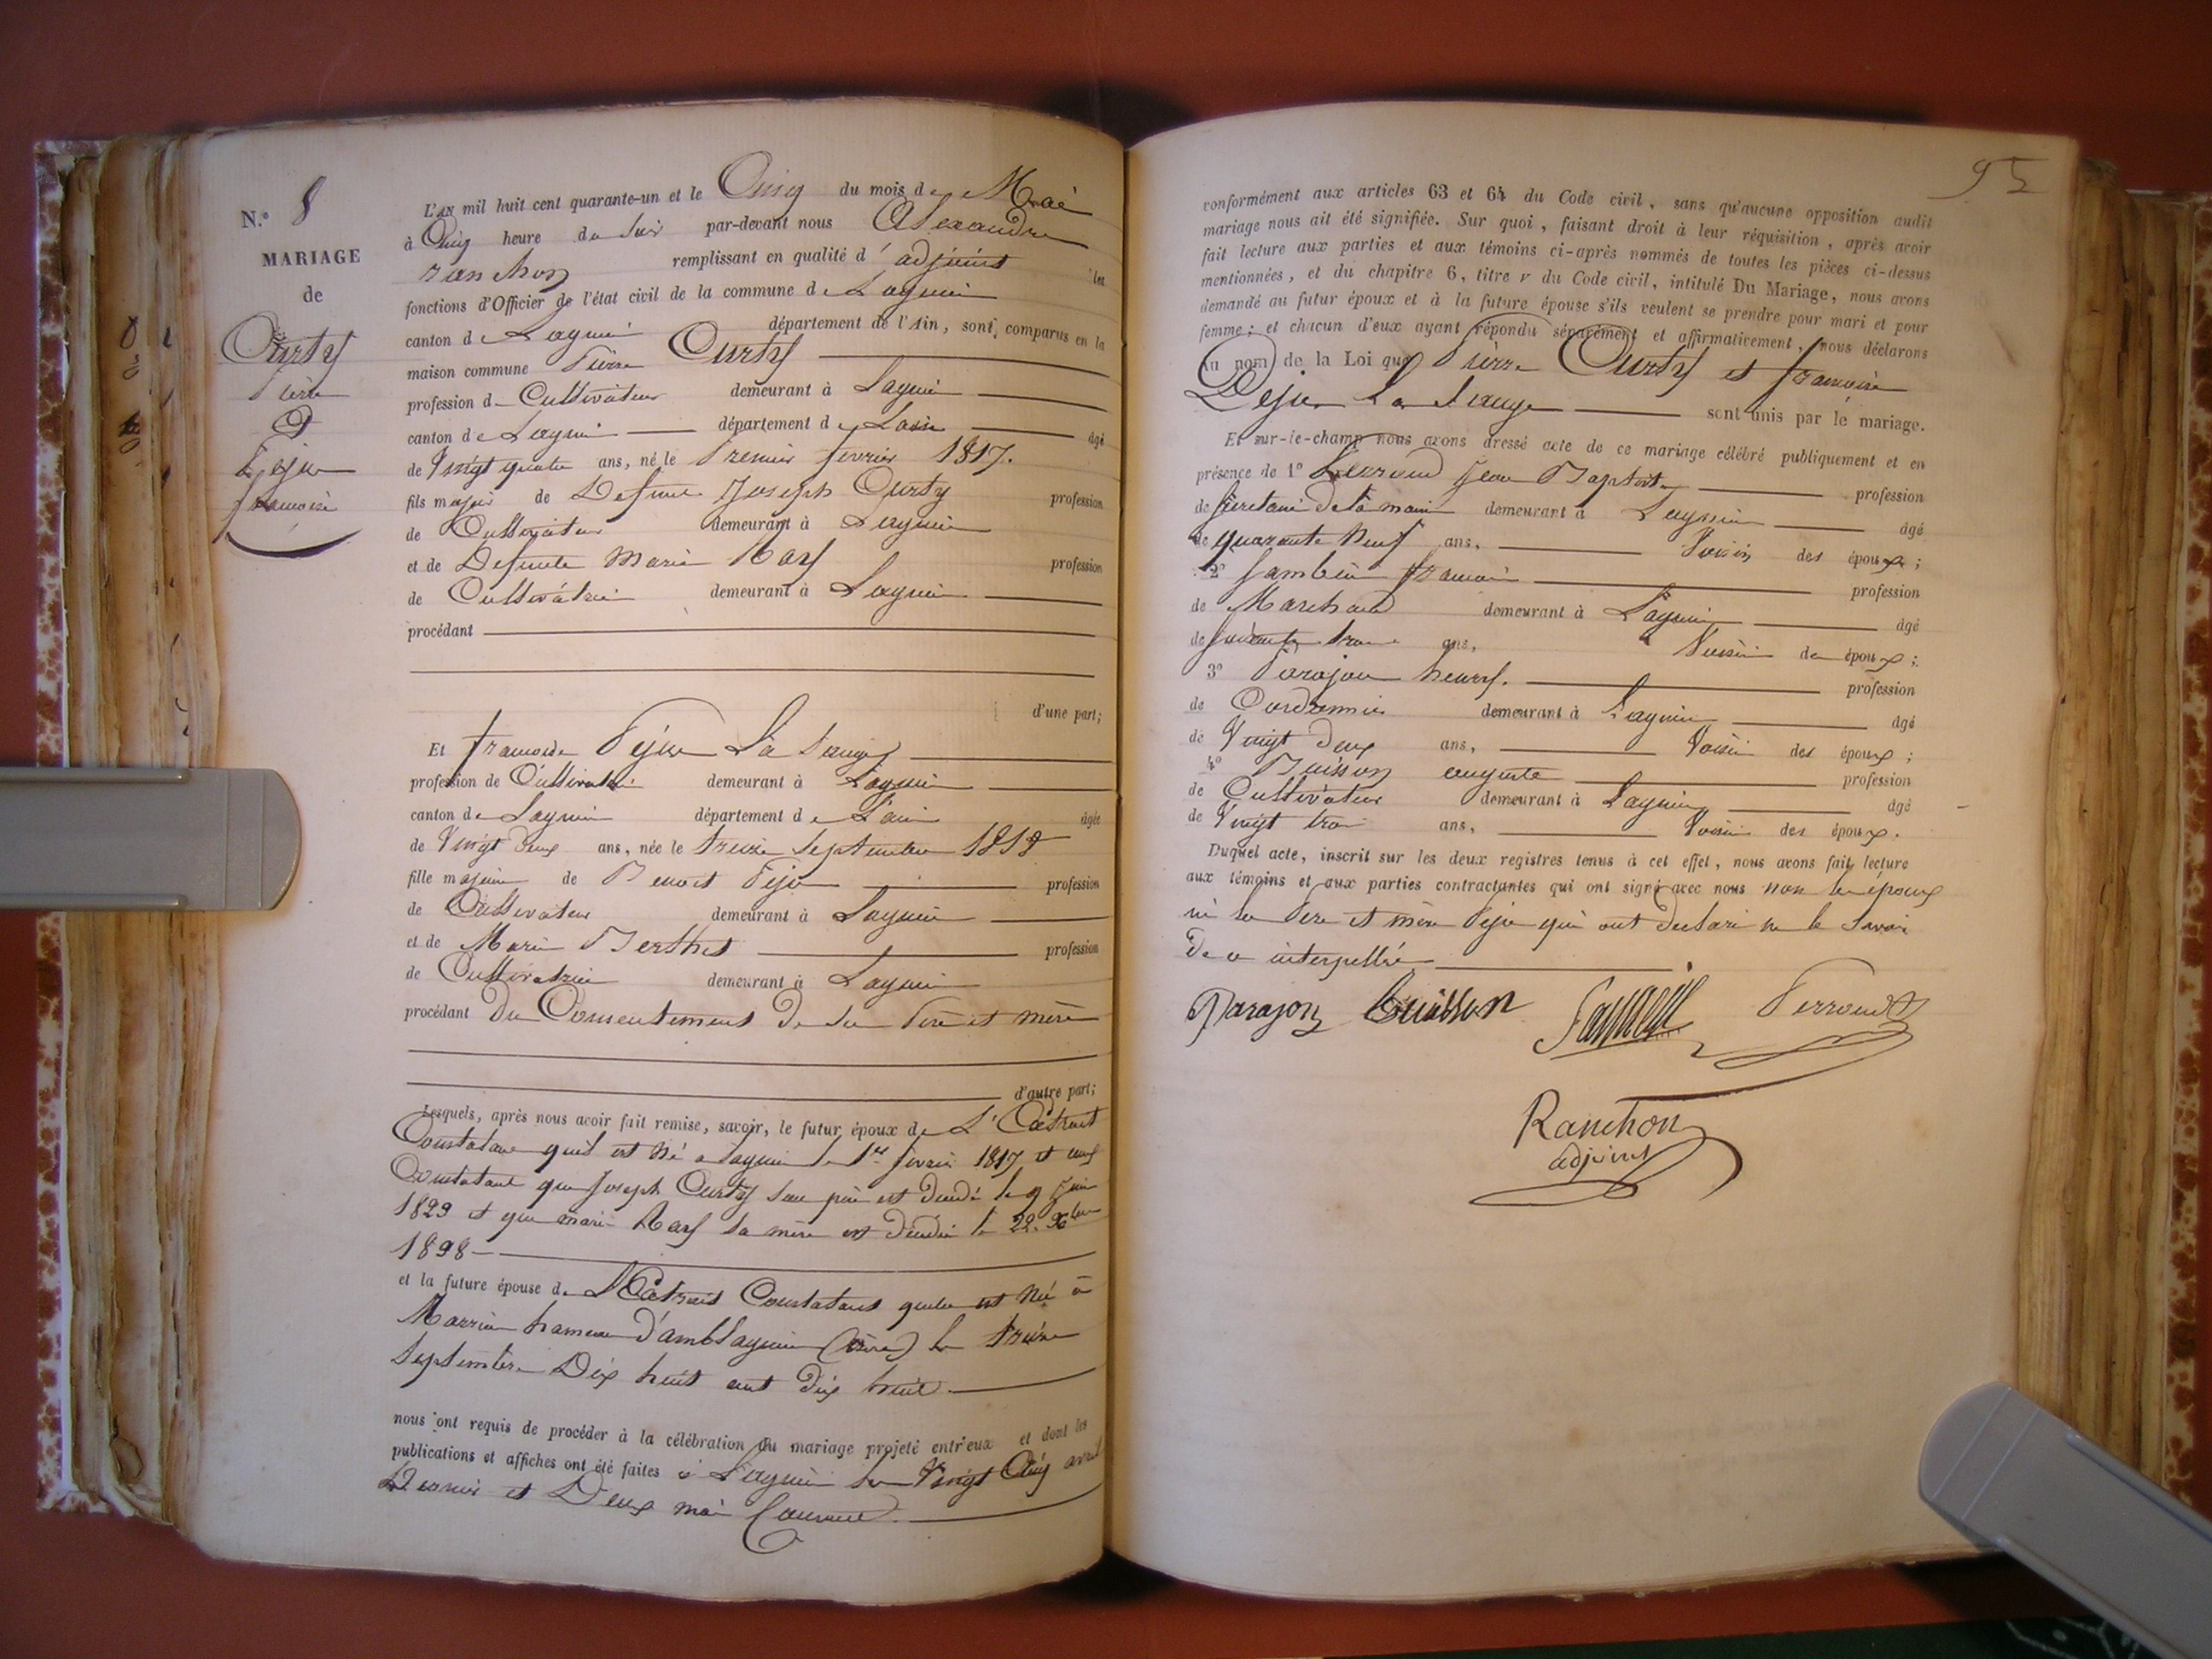 N.º 8
MARIAGE
de
Curty
Pierre
&
Peju
francoise
L'AN mil huit cent quarante-un et le Cinq du mois de Mai
à Cinq heure du Soir par-devant nous Alexandre
ranchon remplissant en qualité d'adjoint les
fonctions d'Officier de l'état civil de la commune de Lagnieu
canton de Lagnieu département de l'Ain, sont comparus en la
maison commune Pierre Curty
profession de Cultivateur demeurant à Lagnieu
canton de Lagnieu département de Lain âgé
de Vingt quatre ans, né le Premier fevrier 1817.
fils majeur de Defunt Joseph Curty profession
de Cultivateur demeurant à Lagnieu
et de Defunte Marie profession
de Cultivatrice demeurant à Lagnieu
procédant
d'une part;
Et francoise Peju La
profession de Cultivatrice demeurant à Lagnieu
canton de Lagnieu département de Lain âgée
de Vingt deux ans, née le treize Septembre 1818
fille majeure de Benoit Peju profession
de Cultivateur demeurant à Lagnieu
et de Marie Berthet profession
de Cultivatrice demeurant à Lagnieu
procédant Du Consentement De Ses Père et mère
d'autre part;
Lesquels, après nous avoir fait remise, savoir, le futur époux de L'Extrait
Constatant quil est Né a lagnieu le 1er fevrier 1817 et
Constatant que Joseph Curty Son père est Décédé le 9 Juin
1829 et que marie Sa mère est Décédée le 22. Xbre
et la future épouse de L'Extrait Constatant quelle est Née à
hameau d'amblagnieu (isère) le treize
Septembre Dix huit cent dix huit.
nous ont requis de procéder à la célébration du mariage projeté entr'eux et dont les
publications et affiches ont été faites à Lagnieu les Vingt Cinq avril
Dernier et Deux mai Courant.
95
conformément aux articles 63 et 64 du Code civil, sans qu'aucune opposition audit
mariage nous ait été signifiée. Sur quoi, faisant droit à leur réquisition, après avoir
fait lecture aux parties et aux témoins ci-après nommés de toutes les pièces ci-dessus
mentionnées, et du chapitre 6, titre v du Code civil, intitulé Du Mariage, nous avons
demandé au futur époux et à la future épouse s'ils veulent se prendre pour mari et pour
femme; et chacun d'eux ayant répondu séparément et affirmativement, nous déclarons
Au nom de la Loi que Pierre Curty et francoise
Peju La sont unis par le mariage.
Et sur-le-champ nous avons dressé acte de ce mariage célébré publiquement et en
présence de 1º Perroud Jean Baptiste profession
de Secretaire de la mairie demeurant à Lagnieu âgé
de quarante Neuf ans, Voisin des époux;
2º francois profession
de Marchand demeurant à Lagnieu âgé
de Soixante trois ans, Voisin des époux;
3º Parajon henry. profession
de Cordonnier demeurant à Lagnieu âgé
de Vingt Deux ans, Voisin des époux;
4º Buisson auguste profession
de Cultivateur demeurant à Lagnieu âgé
de Vingt trois ans, Voisin des époux.
Duquel acte, inscrit sur les deux registres tenus à cet effet, nous avons fait lecture
aux témoins et aux parties contractantes qui ont signé avec nous non les époux
ni les Pere et mère Peju qui ont Declaré ne le Savoir
De ce interpellés
Parajon buisson Perroud
Ranchon
adjoint